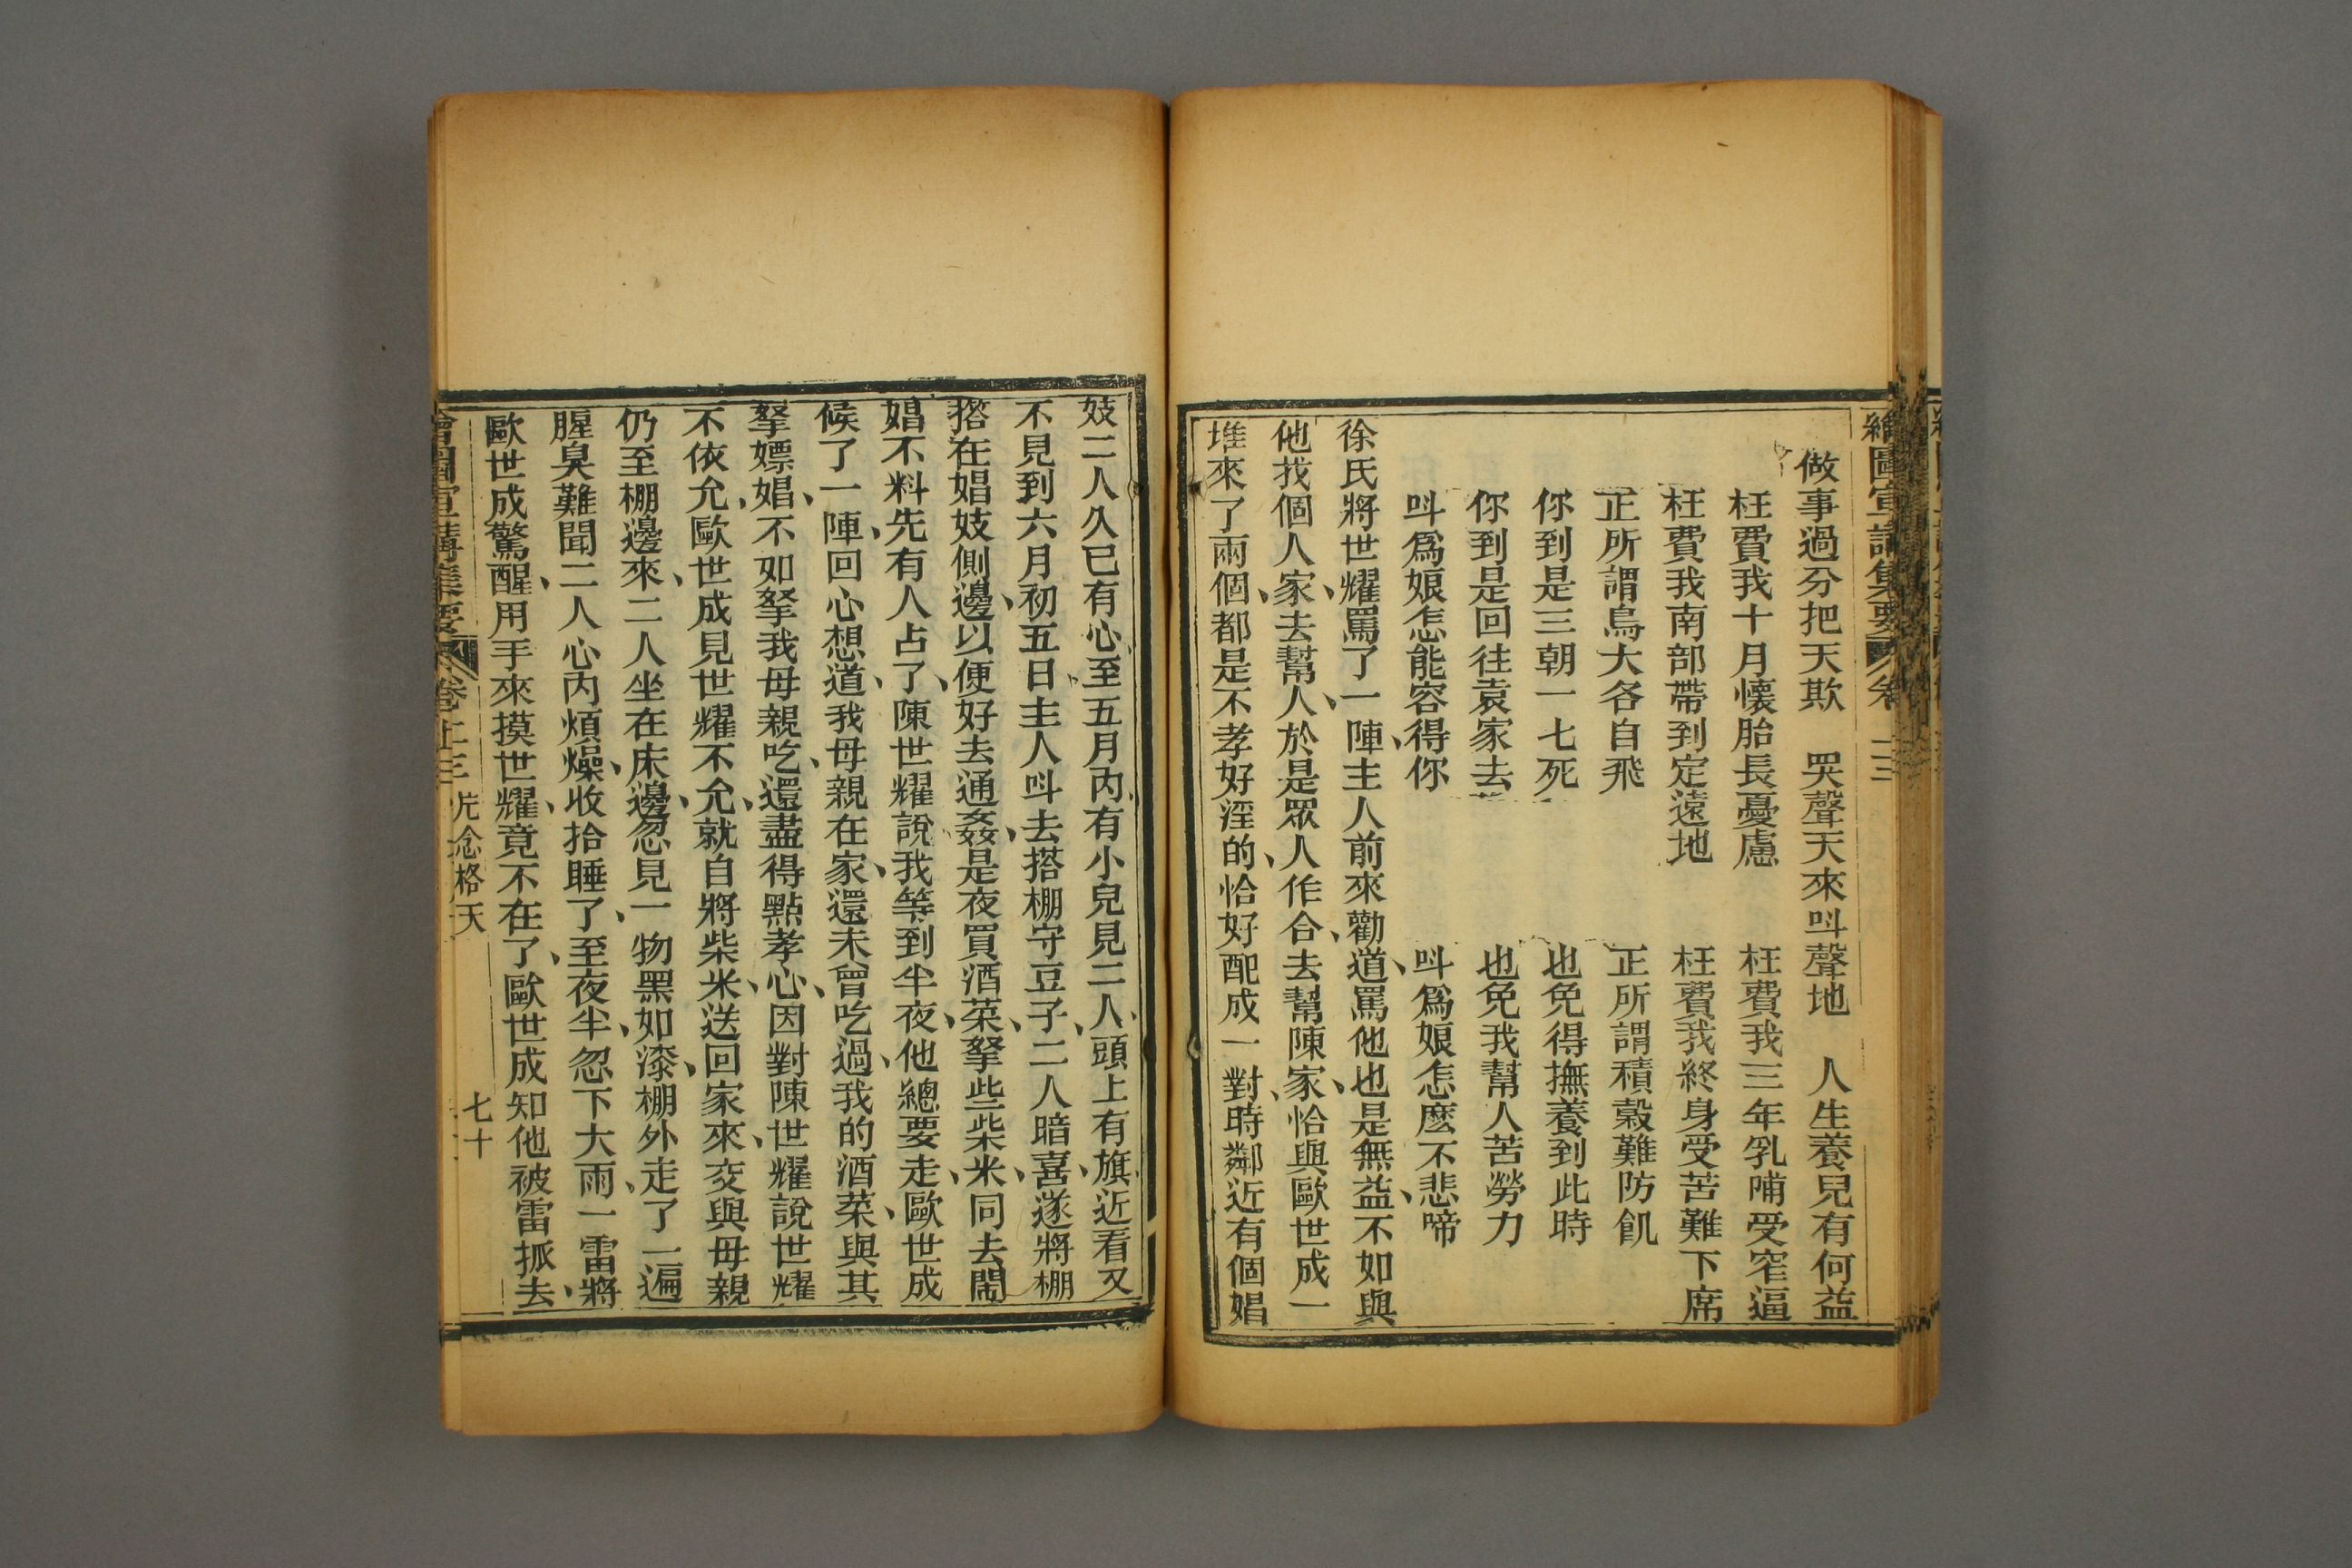 繪圖宣講集要 卷十三
做事過分把天欺 哭聲天來叫聲地 人生養兒有何益
枉費我十月懷胎長憂慮 枉費我三年乳哺受窄逼
枉費我南部帶到定遠地 枉費我終身受苦難下席
正所謂鳥大各自飛 正所謂積穀難防飢
你到是三朝一七死 也免得撫養到此時
你到是回往袁家去 也免我幫人苦勞力
叫爲娘怎能容得你 叫爲娘怎麽不悲啼
徐氏將世耀罵了一陣、主人前來勸道、罵他也是無益、不如與
他找個人家、去幫人、於是眾人作合、去幫陳家、恰與歐世成一
堆來了兩個、都是不孝好淫的、恰好配成一對、時鄰近有個娼
妓二人久已有心、至五月內、有小兒見二人、頭上有旗、近看又
不見、到六月初五日、主人叫去搭棚守豆子、二人暗喜、遂將棚
搭在娼妓側邊、以便好去通姦、是夜買酒菜、拏些柴米、同去鬧
娼、不料先有人占了、陳世耀說、我等到半夜、他總要走、歐世成
候了一陣、回心想道、我母親在家、還未曾吃過、我的酒菜、與其
拏嫖娼、不如拏我母親吃、還盡得點孝心、因對陳世耀說、世耀
不依允、歐世成見世耀不允、就自將柴米、送回家來、交與母親
仍至棚邊來、二人坐在床邊、忽見一物黑如漆、棚外走了一遍
腥臭難聞、二人心內煩燥、收拾睡了、至夜半、忽下大雨、一雷將
歐世成驚醒、用手來摸世耀、竟不在了、歐世成知他被雷抓去
繪圖宣講集要 卷十三 片念格天 七十